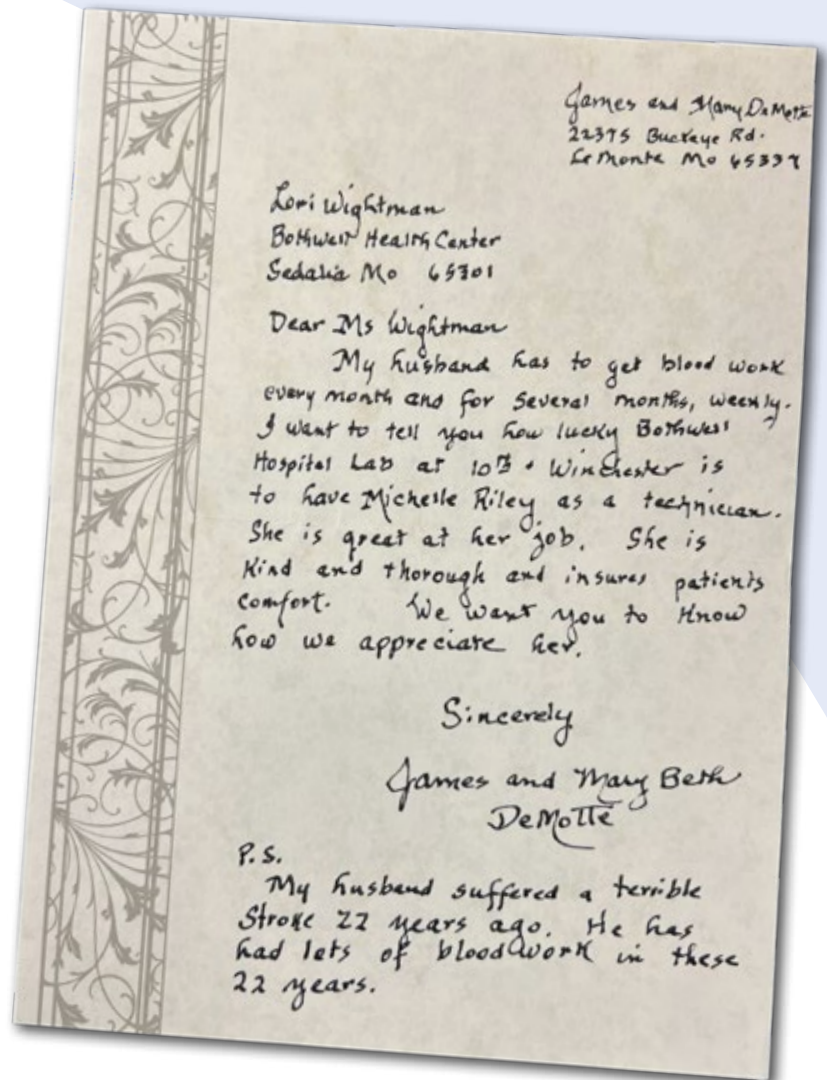 James and Mary DeMotte
22375 Buckeye Rd.
La Monte Mo 65337
Lori Wightman
Bothwell Health Center
Sedalia Mo 65301
Dear Ms Wightman
My husband has to get blood work
every month and for several months, weekly.
I want to tell you how lucky Bothwell
Hospital Lab at 10th & Winchester is
to have Michelle Riley as a technician.
She is great at her job. She is
kind and thorough and insures patients
comfort. We want you to know
how we appreciate her.
Sincerely
James and Mary Beth
DeMotte
P.S.
My husband suffered a terrible
stroke 22 years ago. He has
had lots of blood work in these
22 years.